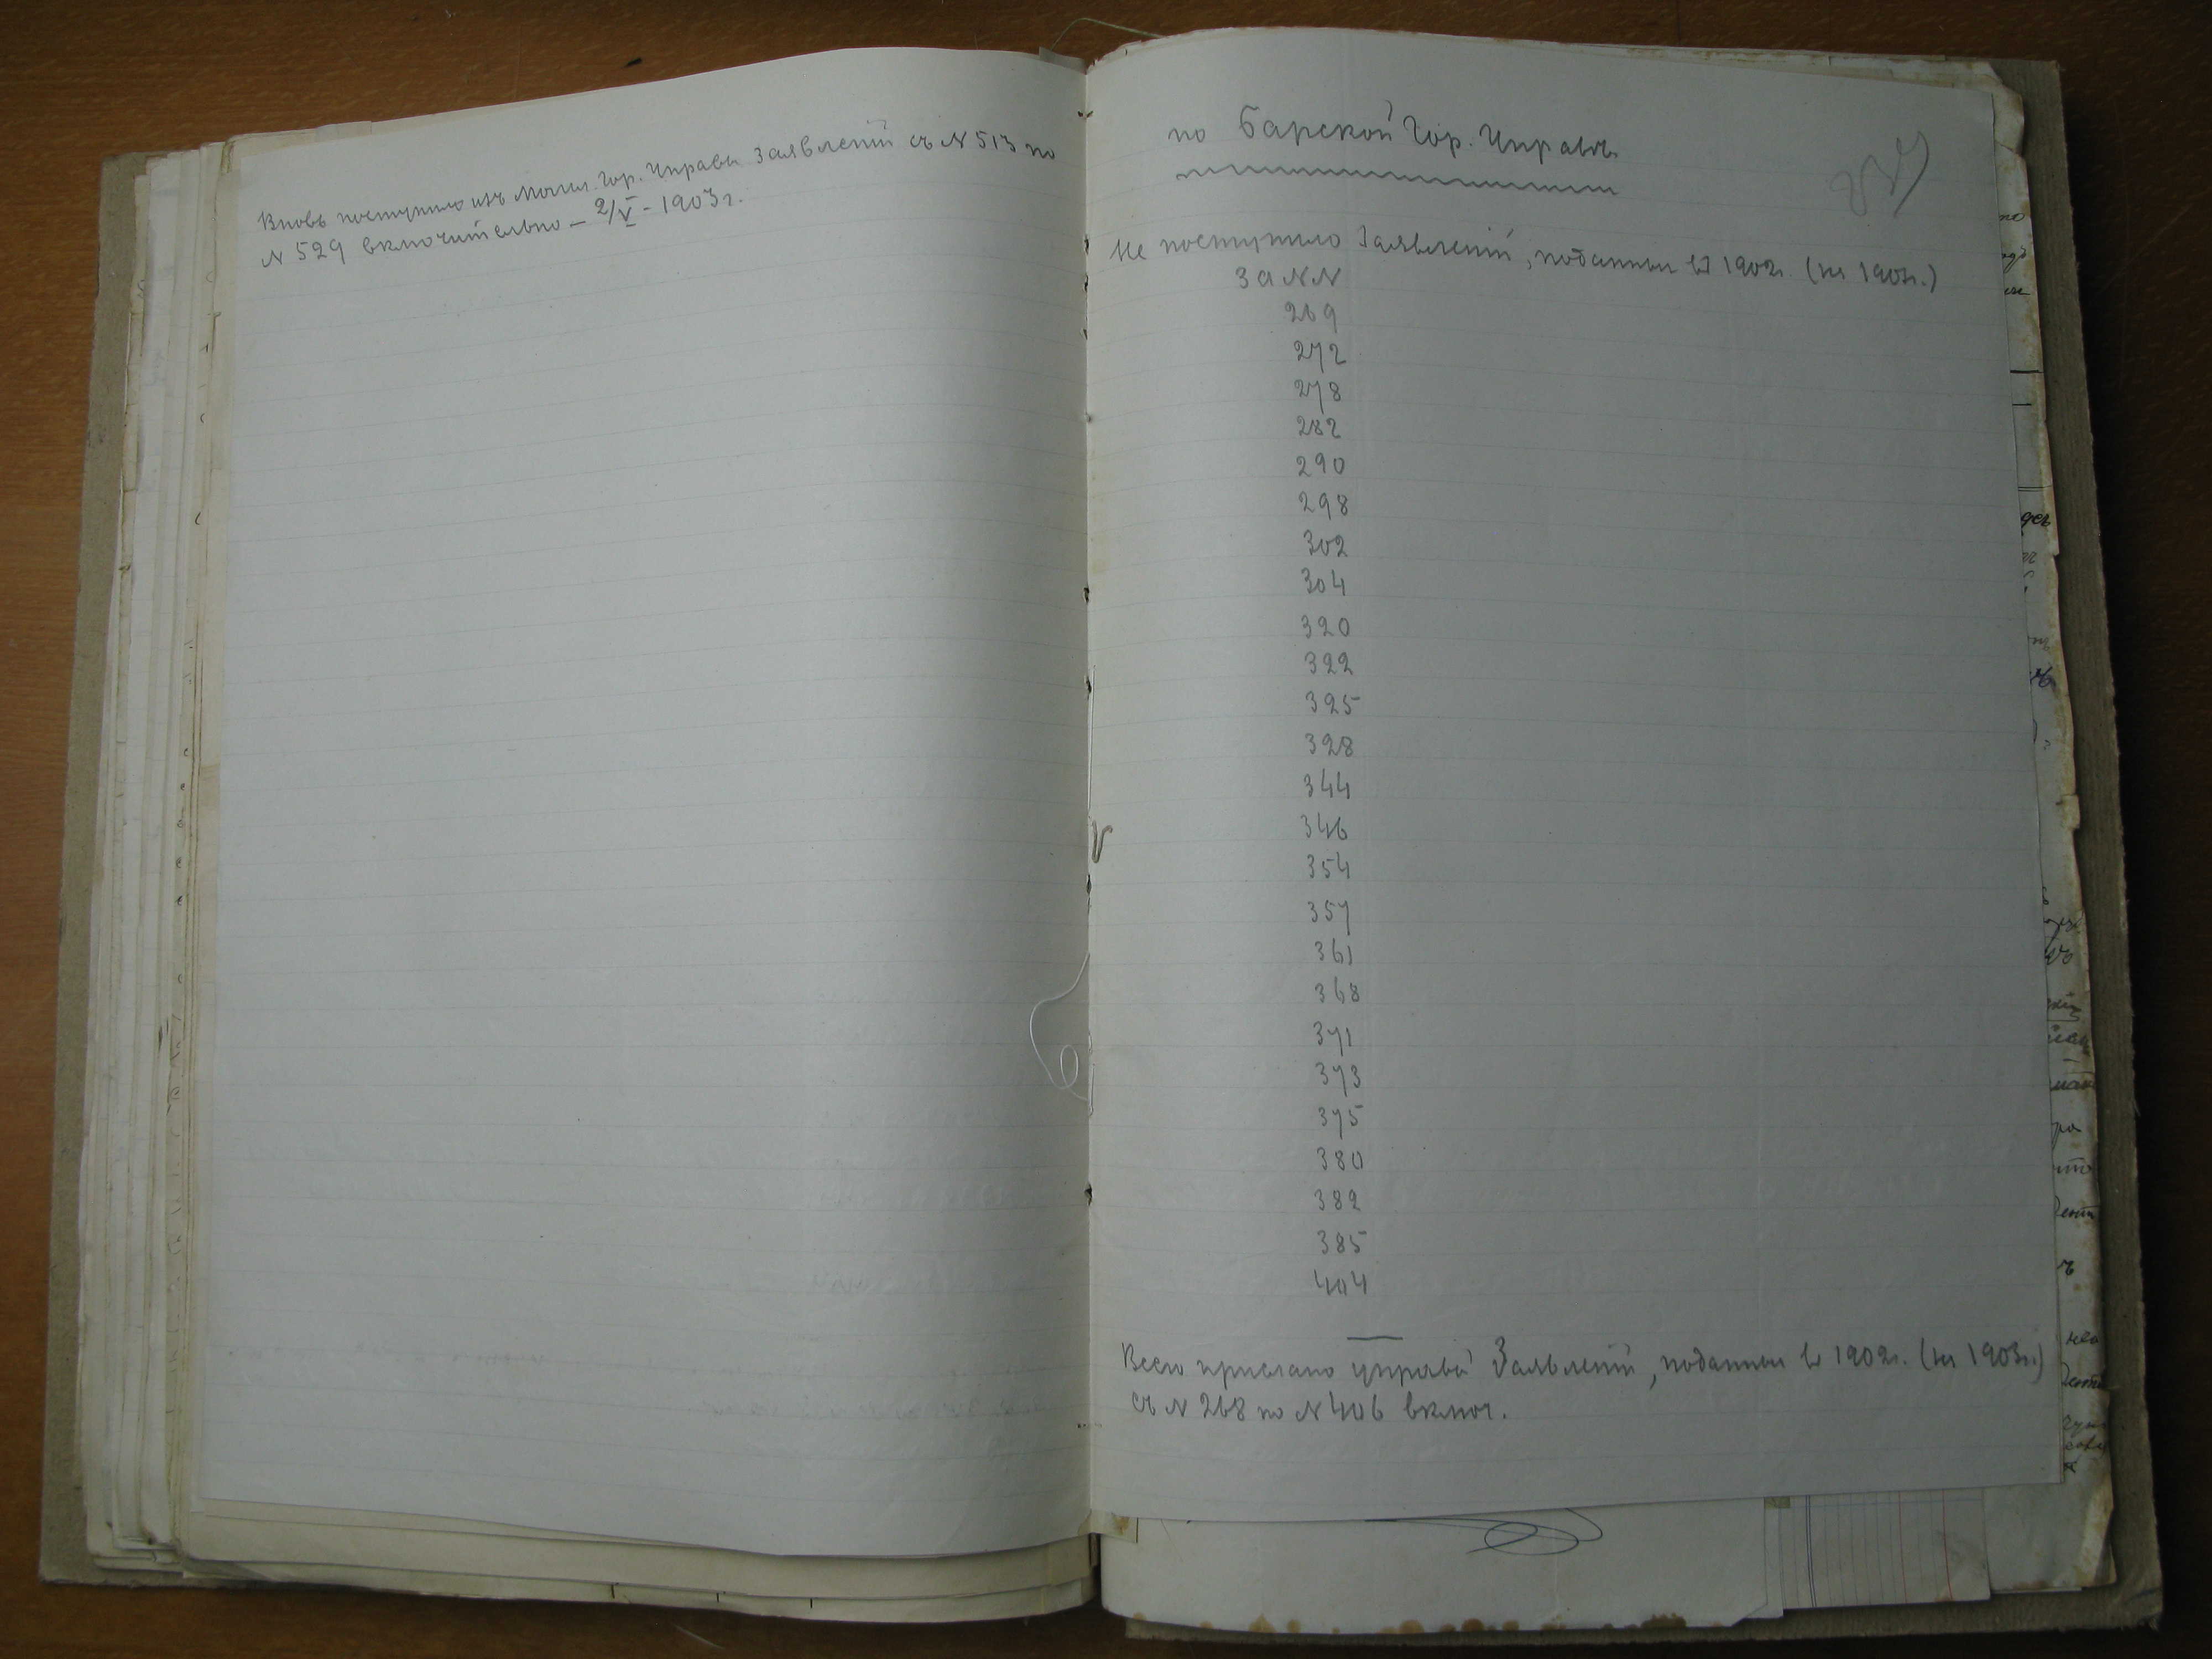 Вновь поступило изъ Могил. Гор. Управы Заявленій съ N 513 по
N 529 включительно – 2/V – 1903 г.
по Барской Гор. Управѣ
Не поступило Заявленій, поданныхъ въ 1902 г. (на 1903 г.)
За NN
269
272
278
282
290
298
302
304
320
322
325
328
344
346
354
357
361
368
371
373
375
380
382
385
404
Всего прислано управой Заявленій, поданныхъ въ 1902 г. (на 1903 г.)
съ N 268 по N 406 включ.